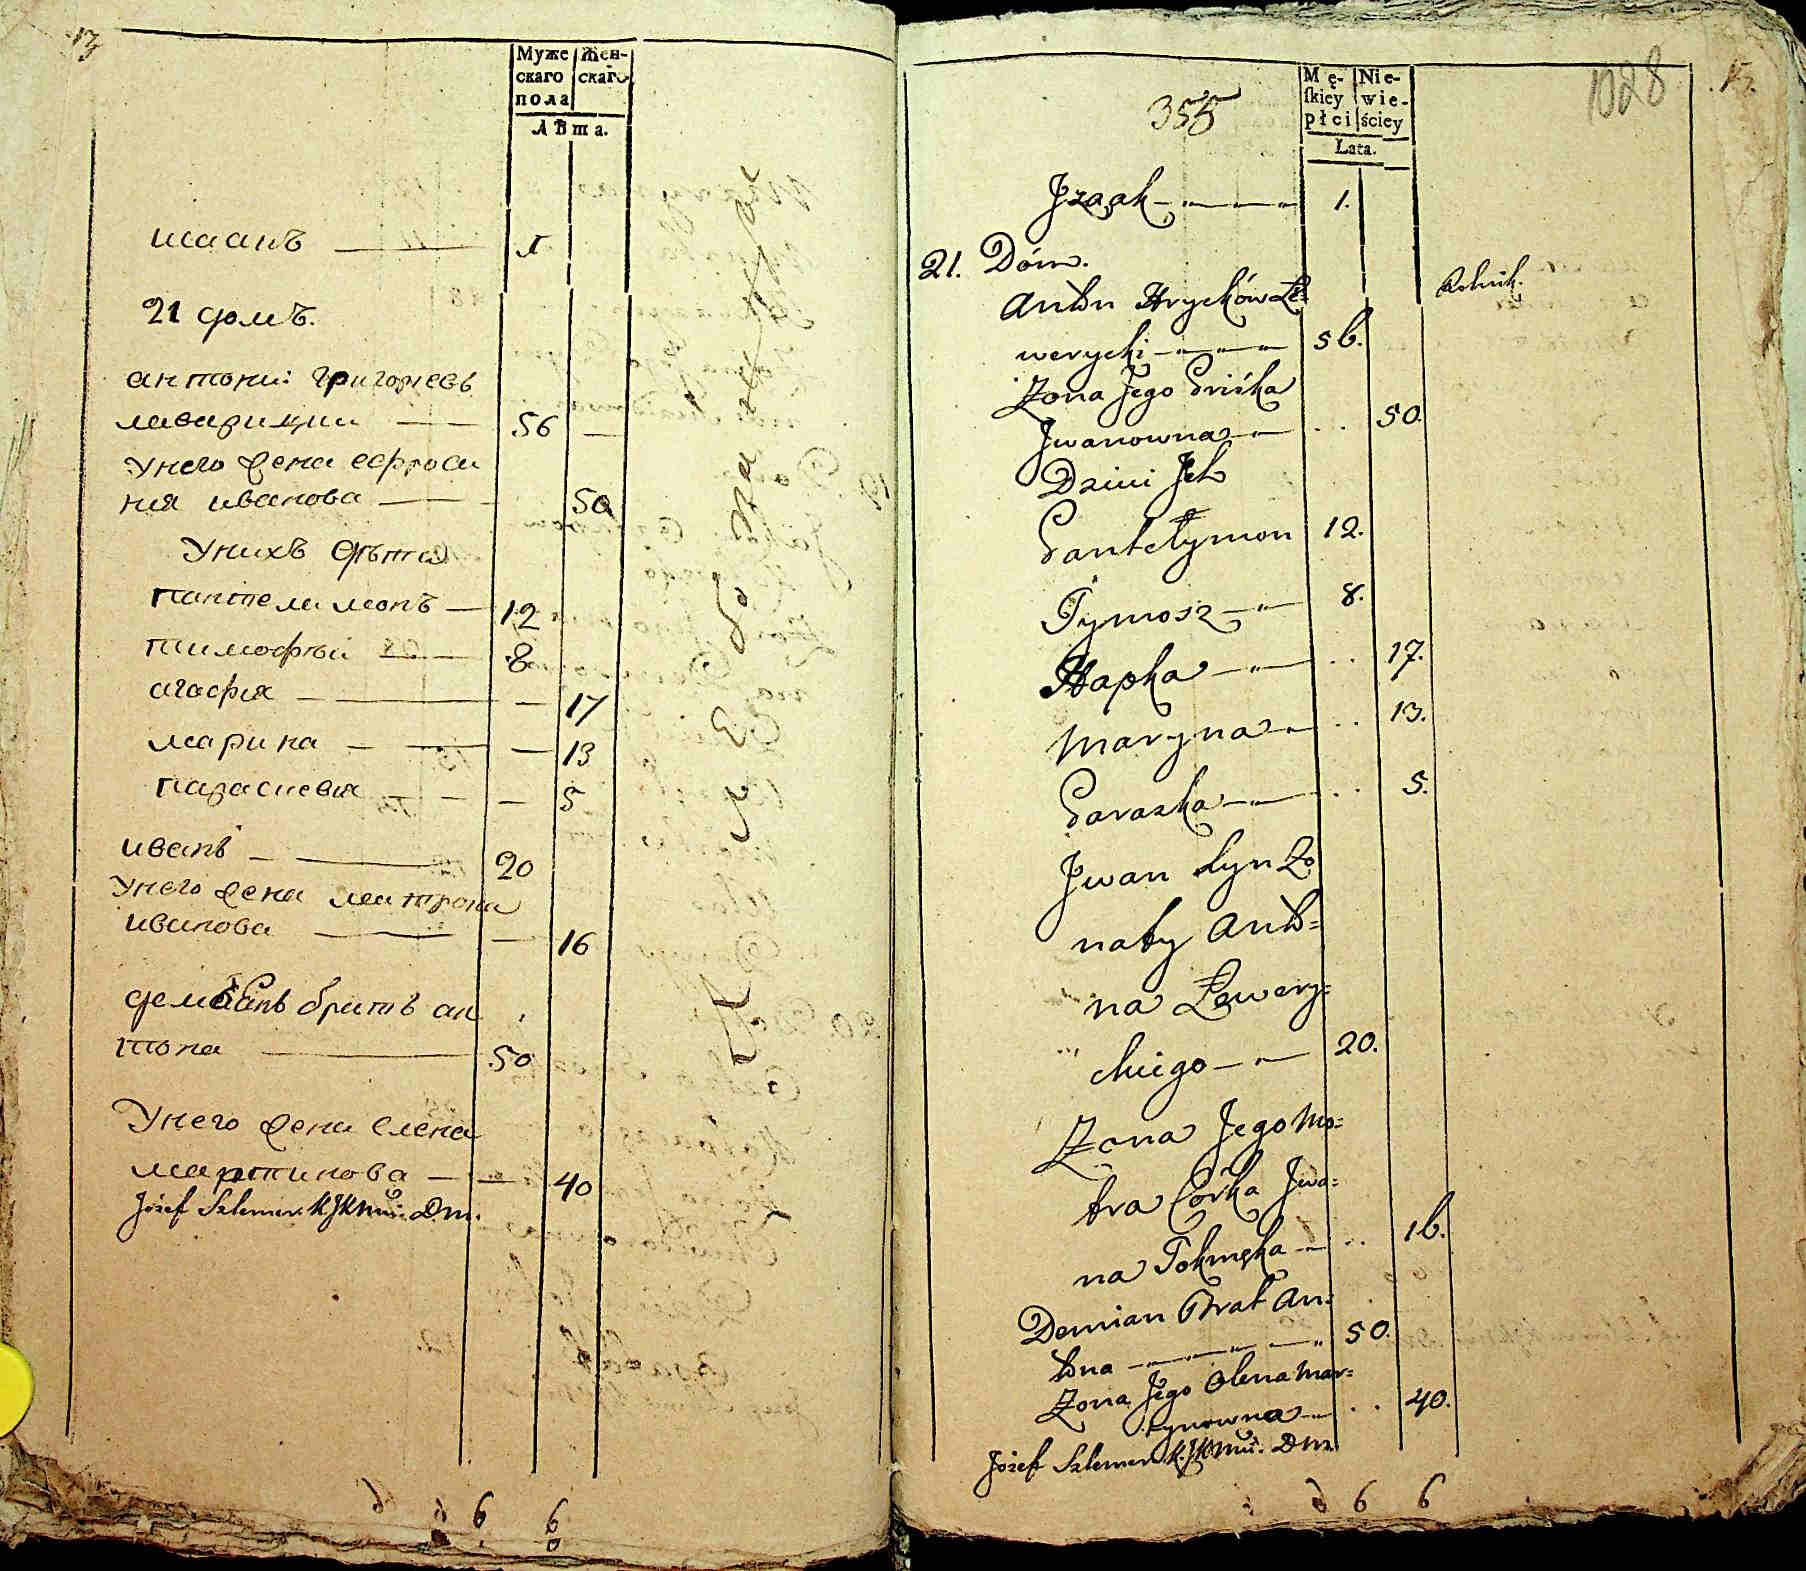 13
Муже
скаго
пола
Жен-
скаго
Лѣта.
исаакъ 1
21 домъ.
антоній григорьевъ
лаварицкій 56
У него жена еѵфроси
ния иванова 50
У нихъ дѣти
пантелимонъ 12
тимофѣй 8
агафия 17
марина 13
параскевия 5
иванъ 20
У него жена матрона
иванова 16
демьянъ братъ ан
тона 50
У него жена елена
мартинова 40
Józef Szlemer K.J.K.Mci. Dm.
6 6
355
1028
13.
Mę-
skiey
płci
Nie-
wie-
ściey
Lata.
Jzaak 1.
21. Dóm.
Anton Hryćków Ła=
werycki 56.
Rolnik.
Żona Jego Pryśka
Jwanowna 50.
Dzieci Jch
Pantełymon 12.
Tymosz 8.
Hapka 17.
Maryna 13.
Paraska 5.
Jwan Syn Żo
naty Anto=
na Ławery=
ckiego 20.
Żona Jego Mo=
tra Córka Jwa=
na 16.
Demian Brat An=
tona 50.
Żona Jego Olena Mar=
tynowna 40.
Józef Szlemer K.J.K.Mci. Dm.
6 6